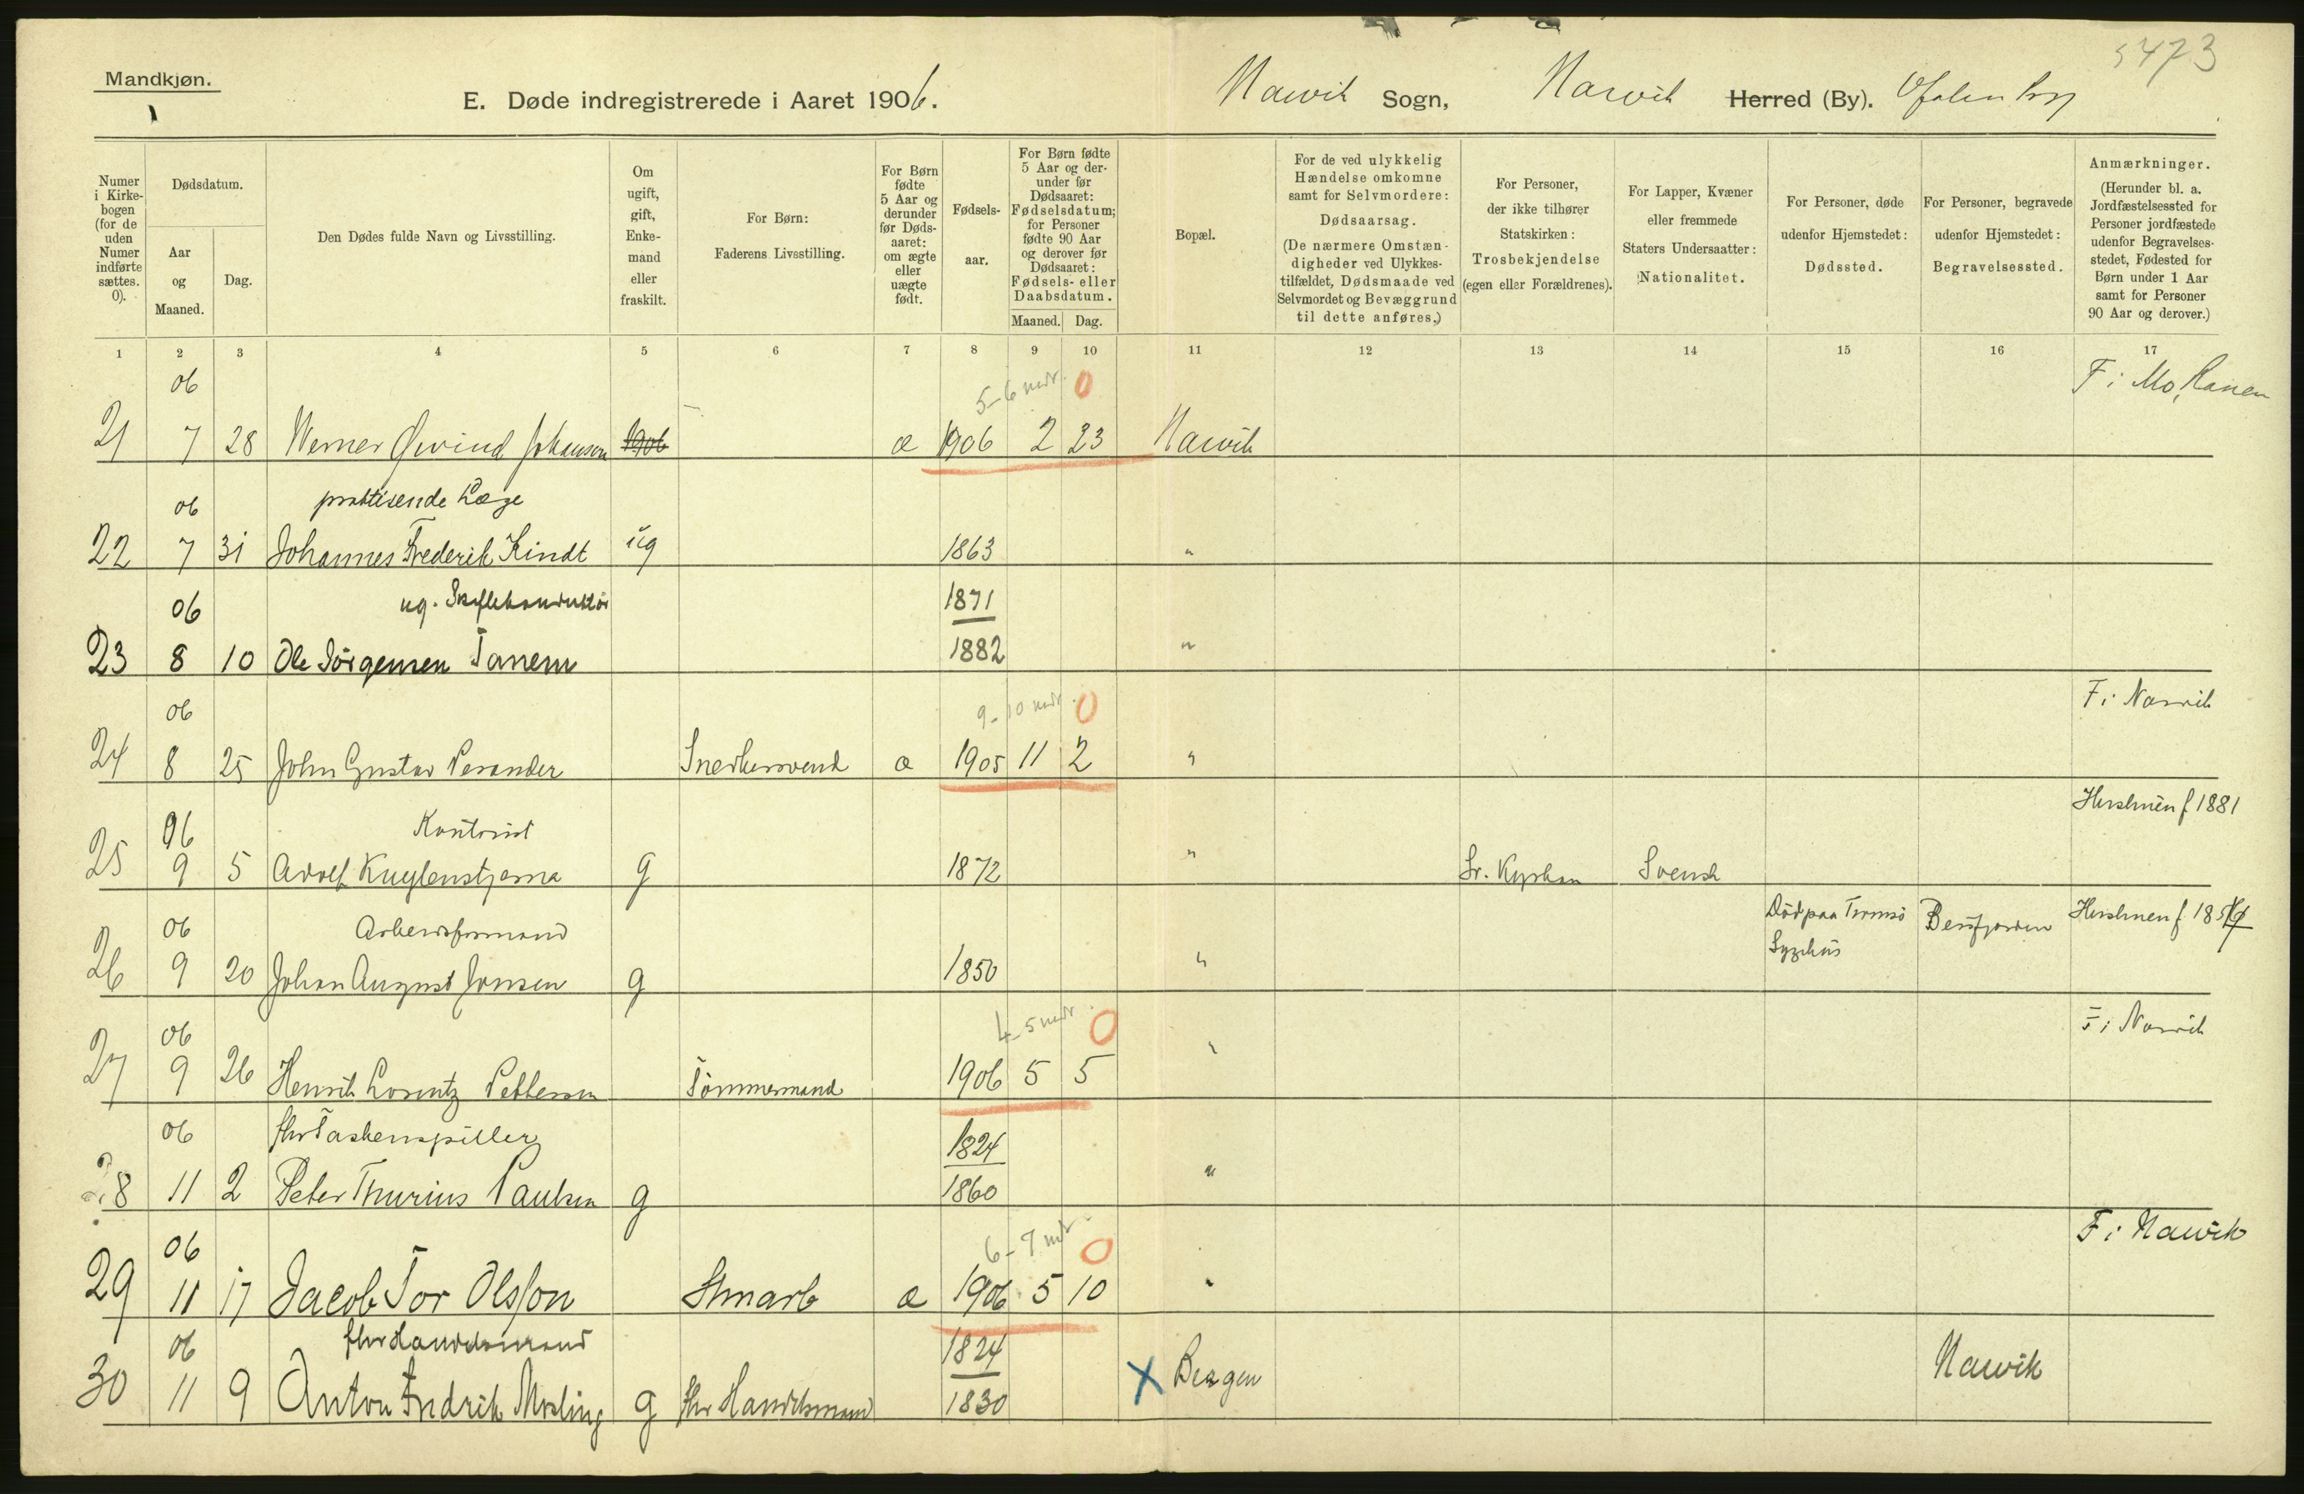 Mandkjøn.
E. Døde indregistrerede i Aaret 1906.
Narvik Sogn, Narvik Herred (By).
473
Numer i Kirke-bogen (for de uden Numer indførte sættes. 0).
Dødsdatum.
Aar og Maaned.
Dag.
Den Dødes fulde Navn og Livsstilling.
Om ugift, gift, Enke-mand eller fraskilt.
For Børn:
Faderens Livsstilling.
For Børn fødte 5 Aar og derunder før Døds-aaret: om ægte eller uægte født.
Fødsels-aar.
For Børn fødte 5 Aar og der-under før Dødsaaret: Fødselsdatum; for Personer fødte 90 Aar og derover før Dødsaaret: Fødsels- eller Daabsdatum.
Maaned. Dag.
Bopæl.
For de ved ulykkelig Hændelse omkomne samt for Selvmordere:
Dødsaarsag.
(De nærmere Omstæn-digheder ved Ulykkes-tilfældet, Dødsmaade ved Selvmordet og Bevæggrund til dette anføres.)
For Personer, der ikke tilhører Statskirken:
Trosbekjendelse
(egen eller Forældrenes).
For Lapper, Kvæner eller fremmede Staters Undersaatter:
Nationalitet.
For Personer, døde udenfor Hjemstedet:
Dødssted.
For Personer, begravede udenfor Hjemstedet:
Begravelsessted.
Anmærkninger.
(Herunder bl. a. Jordfæstelsessted for Personer jordfæstede udenfor Begravelses-stedet, Fødested for Børn under 1 Aar samt for Personer 90 Aar og derover.)
1 2 3 4 5 6 7 8 9 10 11 12 13 14 15 16 17
06 5-6 mdr. 0 F i Mo, Ranen
21 7 28 Werner Øivind Johansen 1906 æ 1906 2 23 Narvik
06 praktisende Læge
22 7 31 Johannes Frederik Kindt ug 1863 "
06 ug. 1871
23 8 10 Ole Jörgensen Tanem 1882 "
06 9-10 mdr. 0 F i Narvik
24 8 25 John Gustav Perander Snedkersvend æ 1905 11 2 "
06 Kontorist f 1881
25 9 5 Adolf Kuylenstjerna g 1872 " Svensk
06 Arbeidsformand Död paa Tromsö Sygehus Beisfjorden
26 9 20 Johan August Jonsen g 1850 "
06 4-5 mdr. 0 F i Narvik
27 9 26 Henrik Lorentz Pettersen Tömmermand 1906 5 5 "
06 fhv Taskenspiller 1824
28 11 2 Peter Thurius Paulsen g 1860 "
06 6-7 mdr. 0 F i Narvik
29 11 17 Jacob Tor Olsson æ 1906 5 10 "
06 fhv Handelsmand 1824
30 11 9 Anton Fredrik Mosling g fhv Handelsmand 1830 X Bergen Narvik